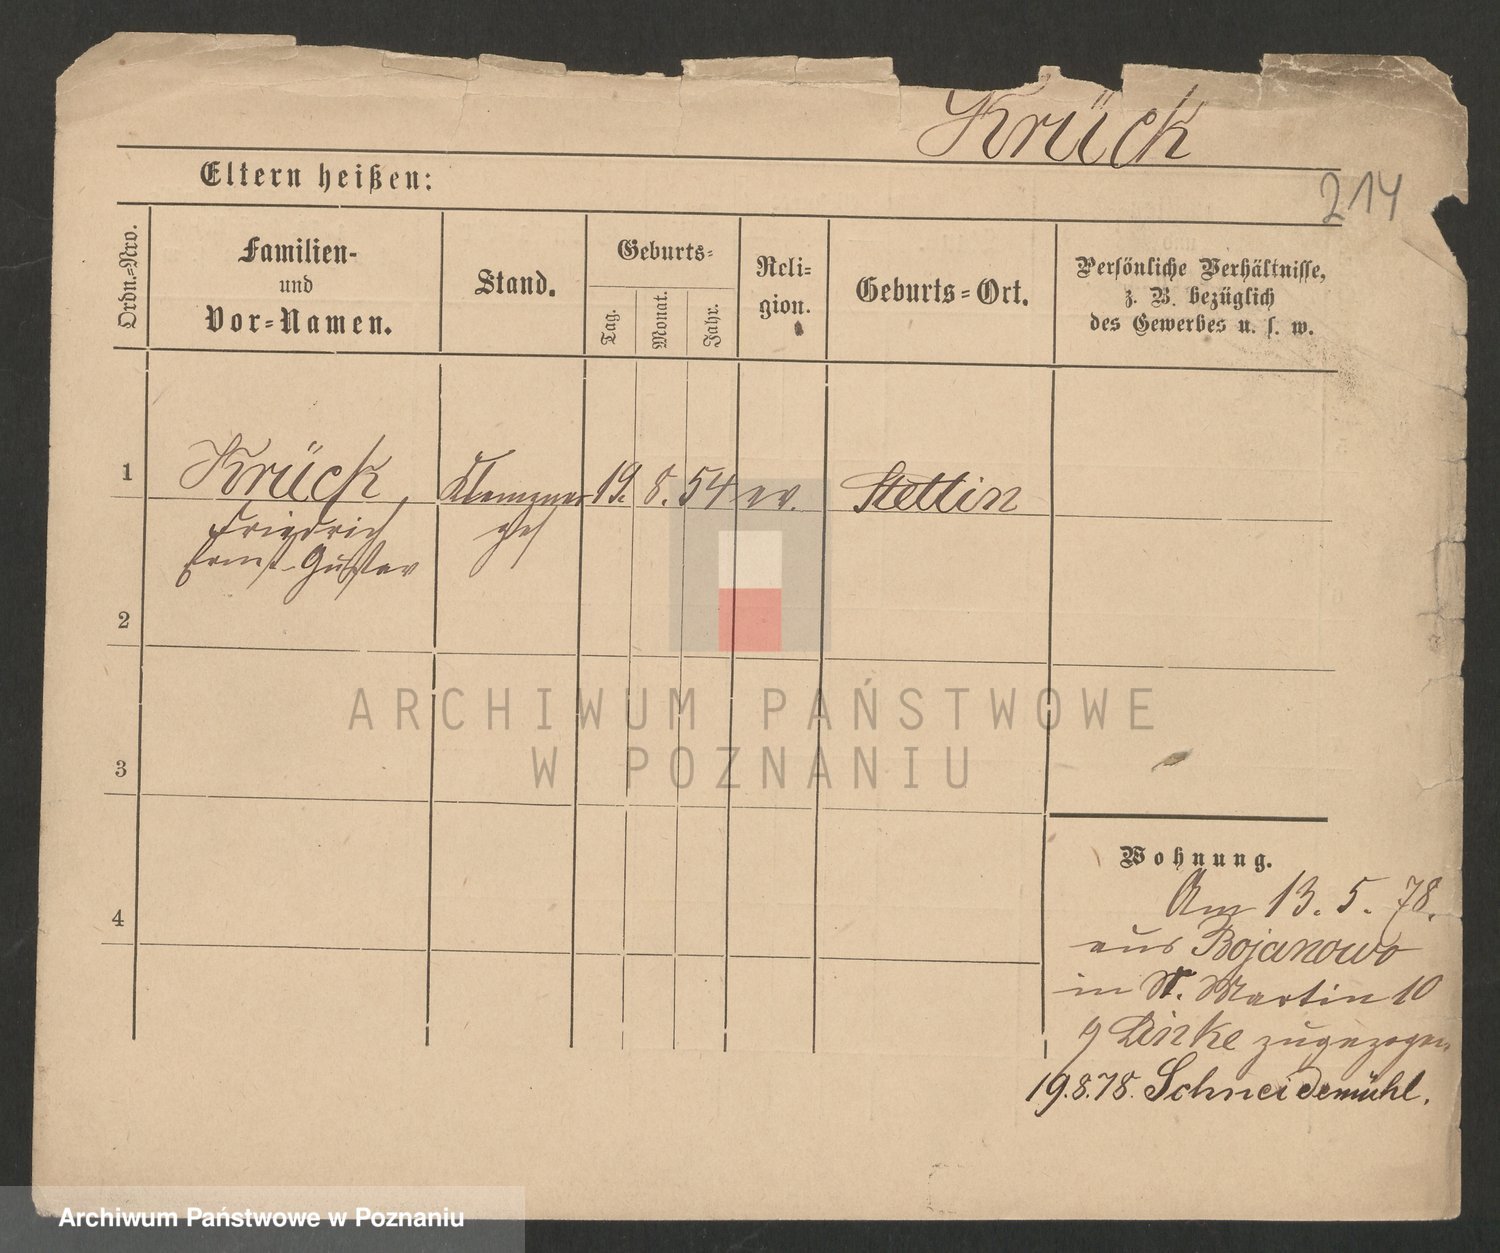 Krück
214
Eltern heißen:
Ordn.-Nro.
Familien-
und
Vor-Namen.
Stand.
Geburts-
Tag.
Monat.
Jahr.
Reli-
gion.
Geburts-Ort.
Persönliche Verhältnisse,
z. B. bezüglich
des Gewerbes u. s. w.
1
Krück, Klempner 19. 8. 54 ev. Stettin
Friedrich
Ernst Gustav
2
3
4
Wohnung.
Am 13. 5. 78.
aus Bojanowo
in St. Martin 10
Linke zugezogen
19.8.78. Schneidemühl.
ARCHIWUM PAŃSTWOWE
W POZNANIU
Archiwum Państwowe w Poznaniu